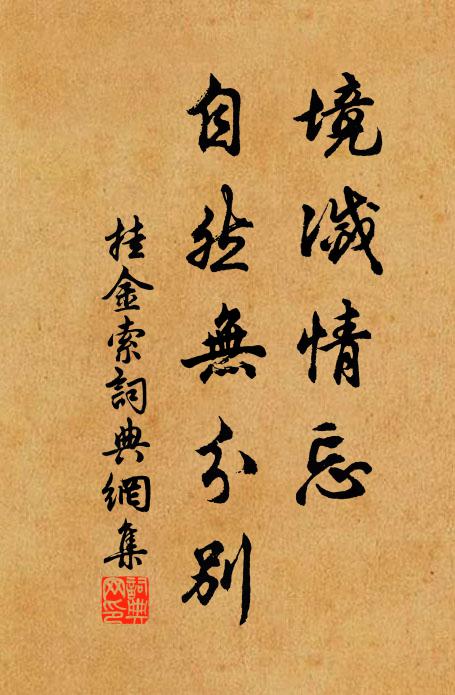 境滅情忘
自然無分别
挂金索詞典網集
詞典網印